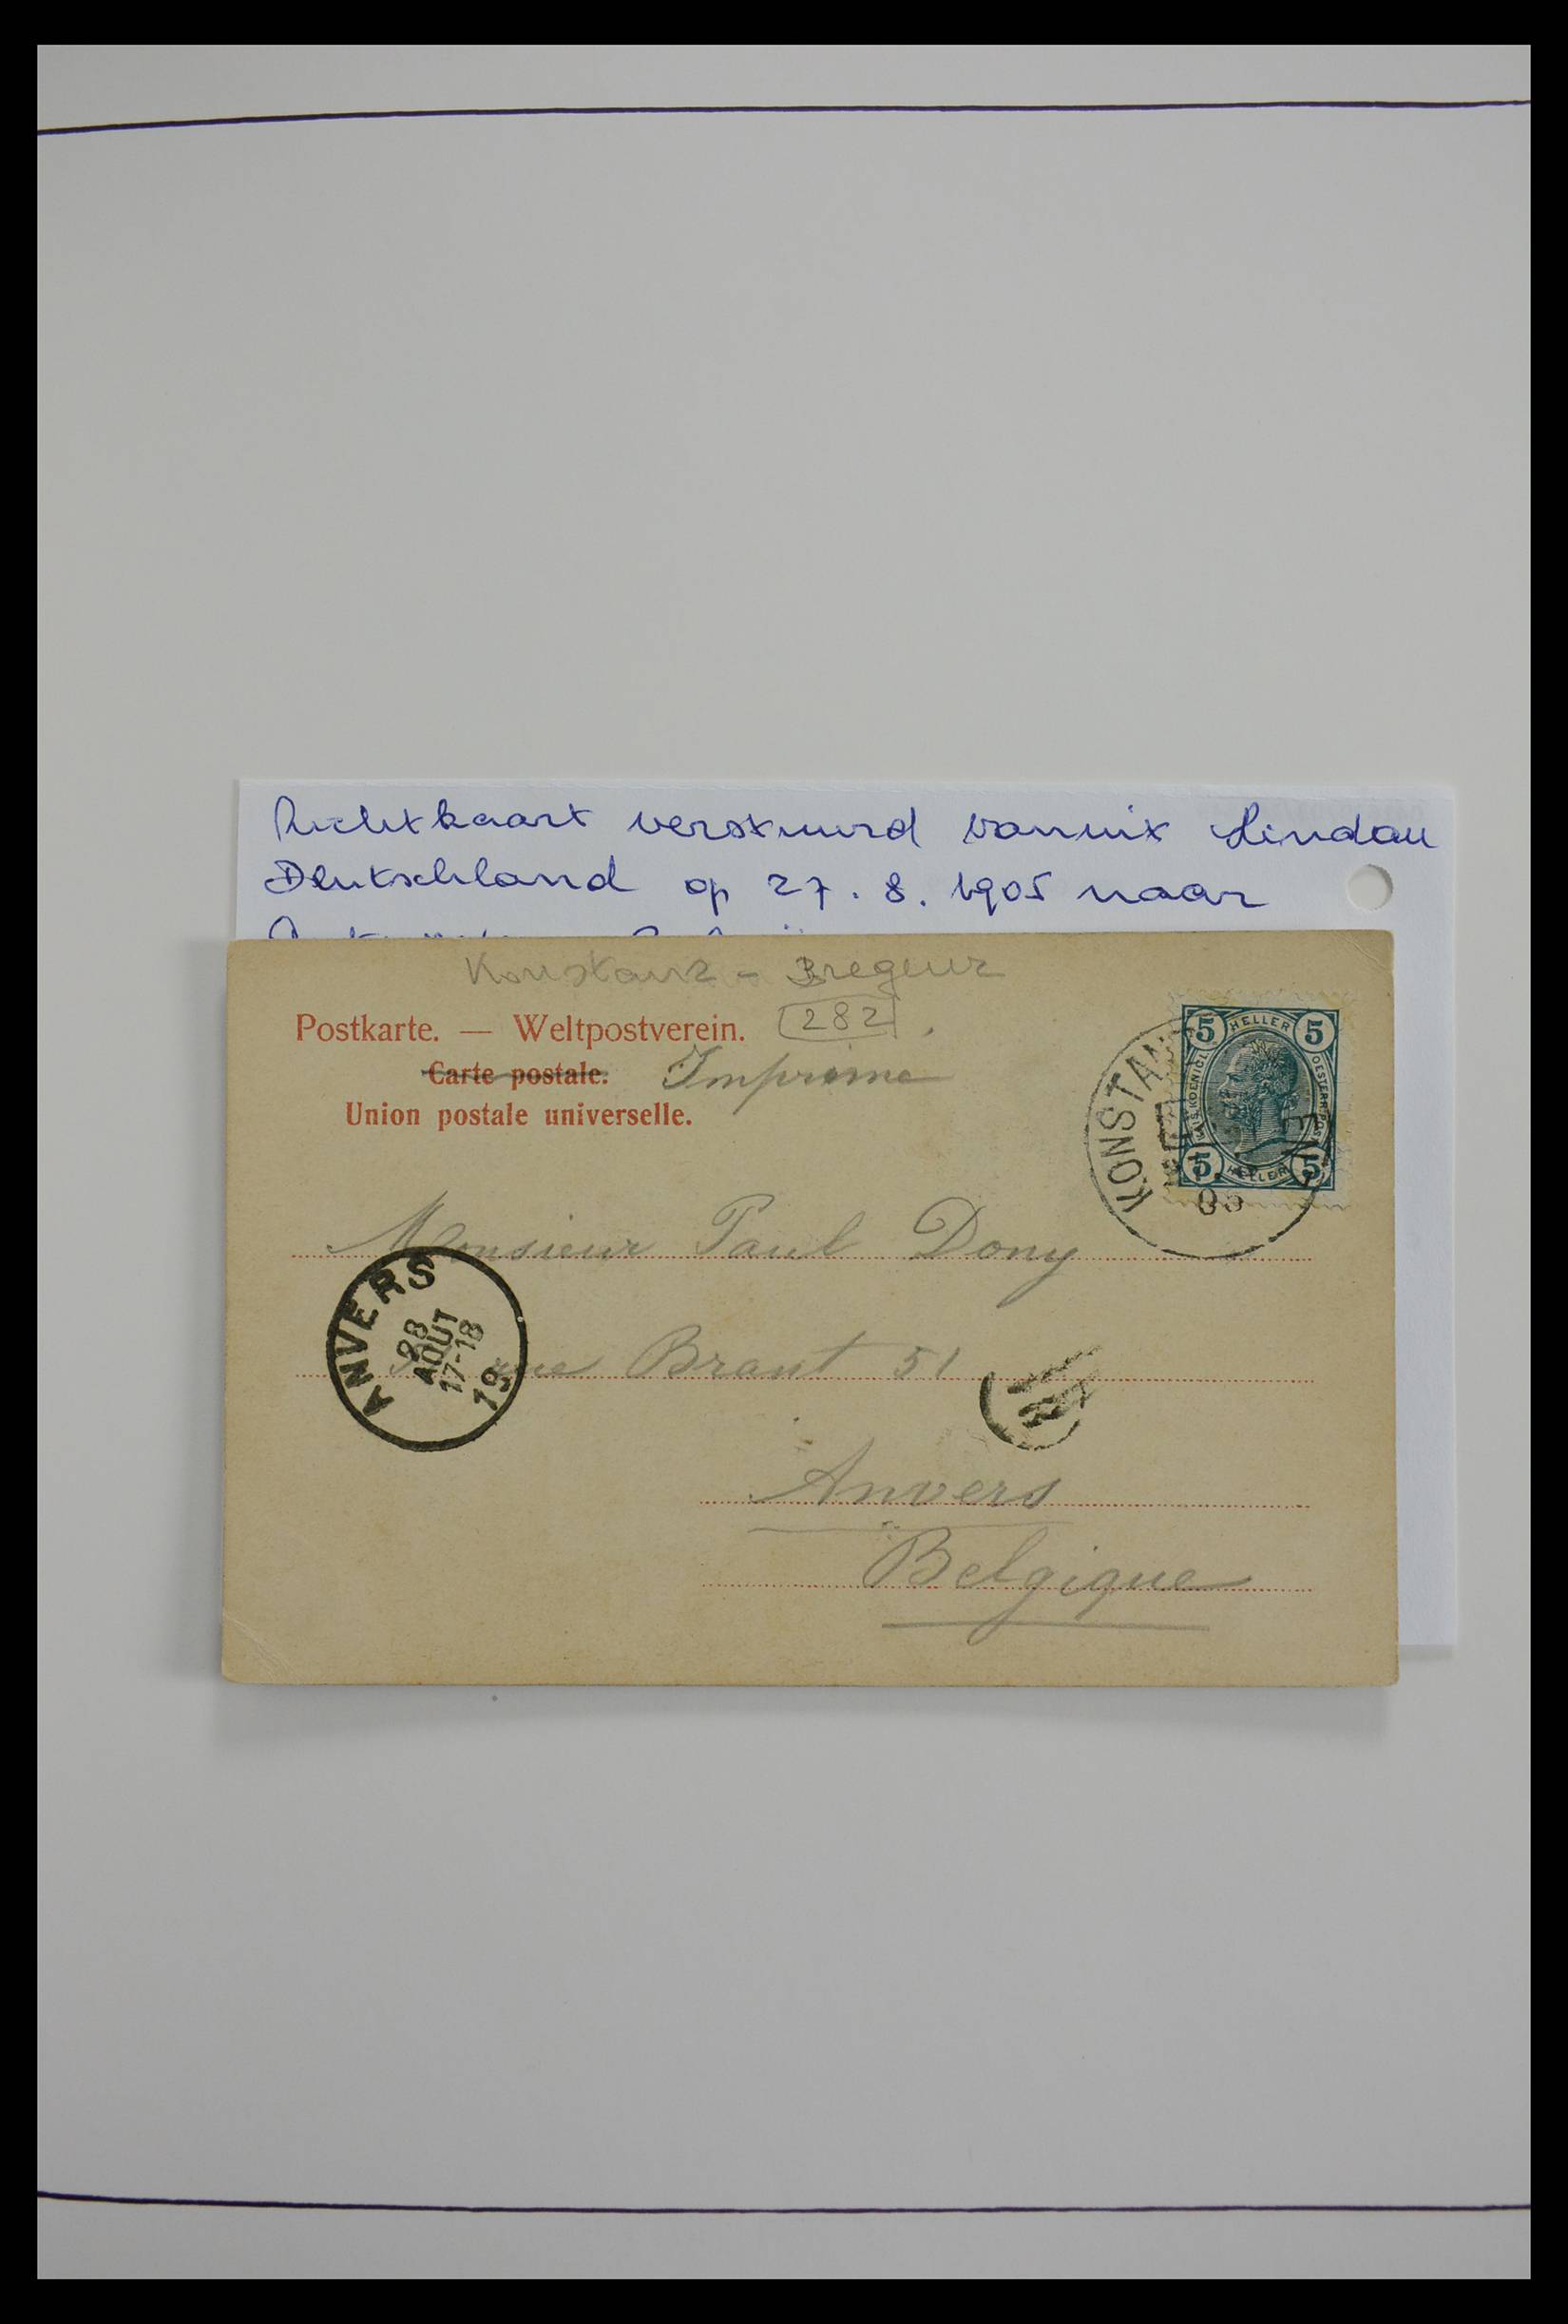 Zichtkaart verstuurd vanuit Lindau
Deutschland op 27.8.1905 naar
Konstanz - Bregenz
Postkarte. — Weltpostverein. 282
Carte postale. Imprimé
Union postale universelle.
5 HELLER 5
KAIS. KOENIGL. OESTERR. POST
5 HELLER 5
KONSTAN
05
Monsieur Paul Dony
rue Brant 51
ANVERS
28
AOUT
17-18
19
Anvers
Belgique